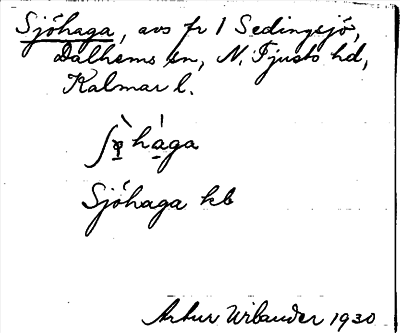 Sjöhaga, avs fr 1 Sedingsjö,
Dalhems sn, N. Tjusts hd,
Kalmar l.
haga
Sjöhaga kb
Artur Urbander 1930